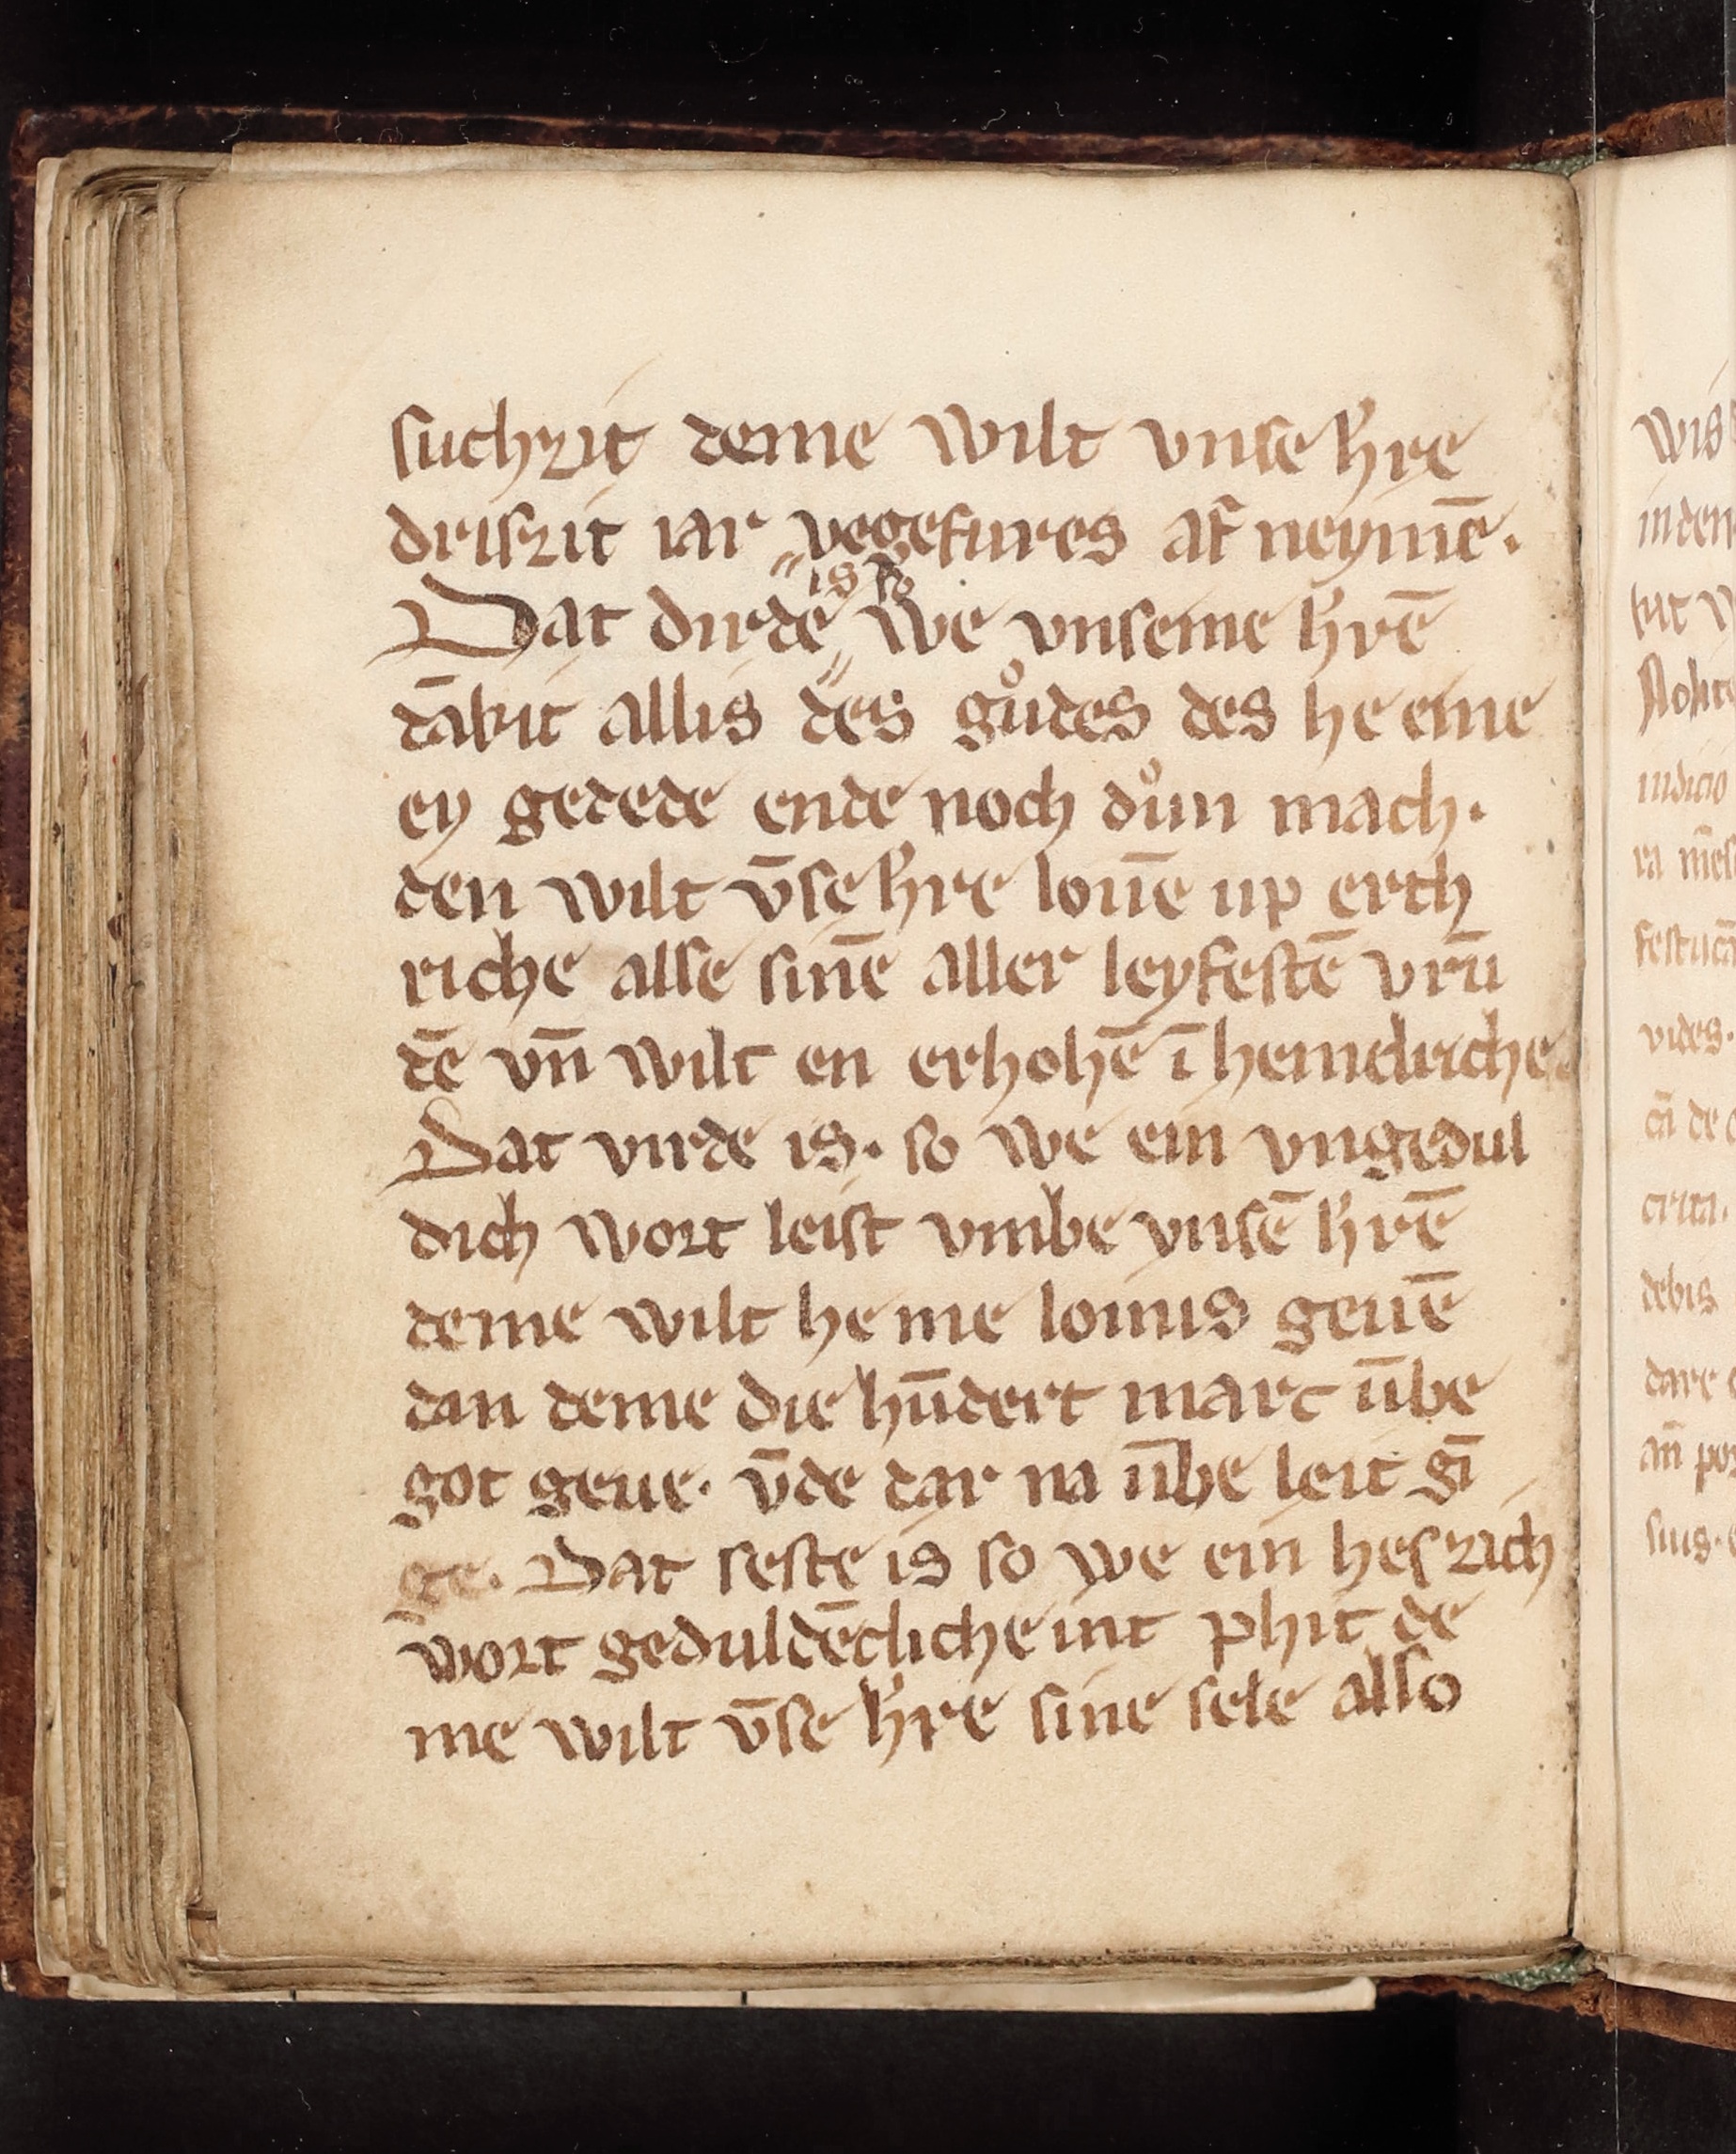 suchzit deme wilt vnse h're
driszit iar vegefures af neymē.
Dat dirde is so we vnseme h'rē
dākit allis des gůdes des he eme
ey gedede ende noch důn mach.
den wilt v̄se h're louē up erth
riche alse sinē aller leyfestē vrū
dē vn̄ wilt en erhohē ī hemelriche.
Dat virde is. so we ein vngedul
dich wort leist vmbe vnsē h'rē
deme wilt he me lonnis geuē
dan deme die hūdert marc ūbe
got geue. v̄de dar na ūbe leit gī
ge. Dat seste is so we ein heszich
wort geduldēcliche int phit de
me wilt v̄se h're sine sele also
wis
inden
Nolite
iudicio
festucā
vides.
debis
dare
suis.